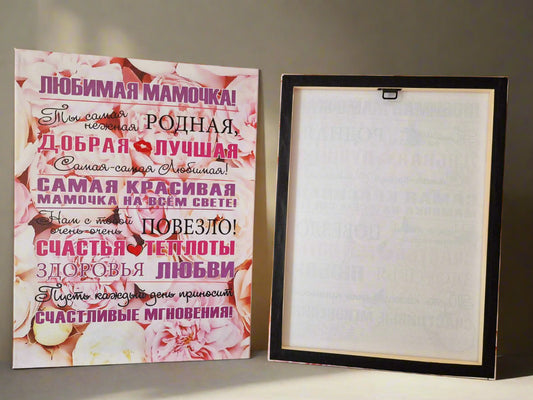 ЛЮБИМАЯ МАМОЧКА!
Ты самая
нежная РОДНАЯ,
ДОБРАЯ ЛУЧШАЯ
Самая-самая Любимая!
САМАЯ КРАСИВАЯ
МАМОЧКА НА ВСЁМ СВЕТЕ!
Нам с тобой
очень-очень ПОВЕЗЛО!
СЧАСТЬЯ ТЕПЛОТЫ
ЗДОРОВЬЯ ЛЮБВИ
Пусть каждый день приносит
СЧАСТЛИВЫЕ МГНОВЕНИЯ!